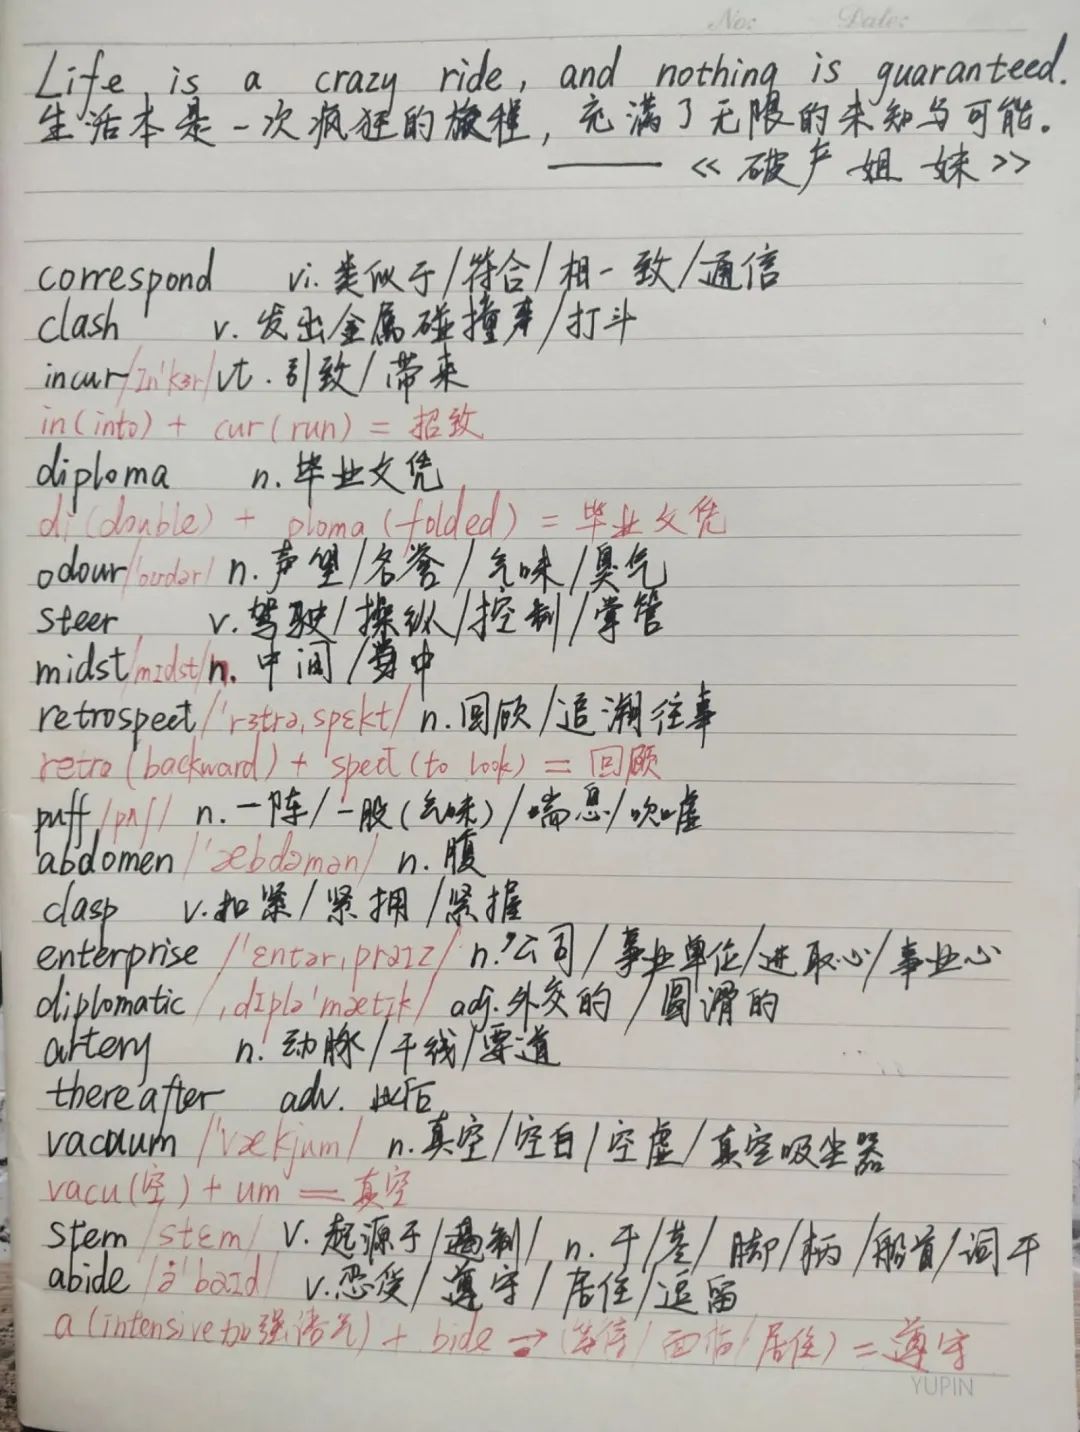 No: Date:
Life is a crazy ride, and nothing is guaranteed.
生活本是一次疯狂的旅程，充满了无限的未知与可能。
——《破产姐妹》
correspond vi. 类似于/符合/相一致/通信
clash v. 发出金属碰撞声/打斗
incur/ɪn'kɜr/vt. 引致/带来
in(into) + cur(run) = 招致
diploma n. 毕业文凭
di(double) + ploma(folded) = 毕业文凭
odour/oʊdər/ n. 声望/名誉/气味/臭气
steer v. 驾驶/操纵/控制/掌管
midst/mɪdst/n. 中间/当中
retrospect/'rɜtrə,spɛkt/ n. 回顾/追溯往事
retro(backward) + spect(to look) = 回顾
puff/pʌf/ n. 一阵/一股(气味)/喘息/吹嘘
abdomen/'æbdəmən/ n. 腹
clasp v. 扣紧/紧拥/紧握
enterprise /'ɛntər,praɪz/ n. 公司/事业单位/进取心/事业心
diplomatic /,dɪplə'mætɪk/ adj. 外交的/圆滑的
artery n. 动脉/干线/要道
thereafter adv. 此后
vacuum /'vækjum/ n. 真空/空白/空虚/真空吸尘器
vacu(空) + um = 真空
stem /stɛm/ v. 起源于/遏制/ n. 干/茎/脚/柄/船首/词干
abide /ə'baɪd/ v. 忍受/遵守/居住/逗留
a(intensive加强语气) + bide → (等待/面临/居住) = 遵守
YUPIN